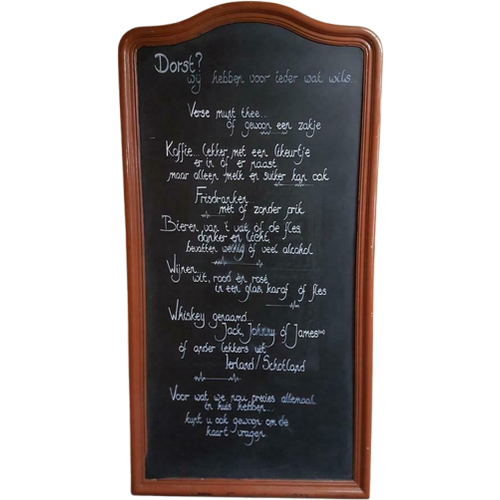 Dorst?
wij hebben voor ieder wat wils...
Verse munt thee...
of gewoon een zakje
Koffie... lekker met een likeurtje
er in of er naast
maar alleen melk en suiker kan ook
Frisdranken
met of zonder prik
Bieren van 't vat of de fles
donker en licht,
bevatten weinig of veel alcohol
Wijnen
wit, rood en rosé,
in een glas, karaf of fles
Whiskey genaamd...
Jack, Johnny óf James
óf ander lekkers uit
Ierland/Schotland
Voor wat we nou precies allemaal
in huis hebben...
kunt u ook gewoon om de
kaart vragen